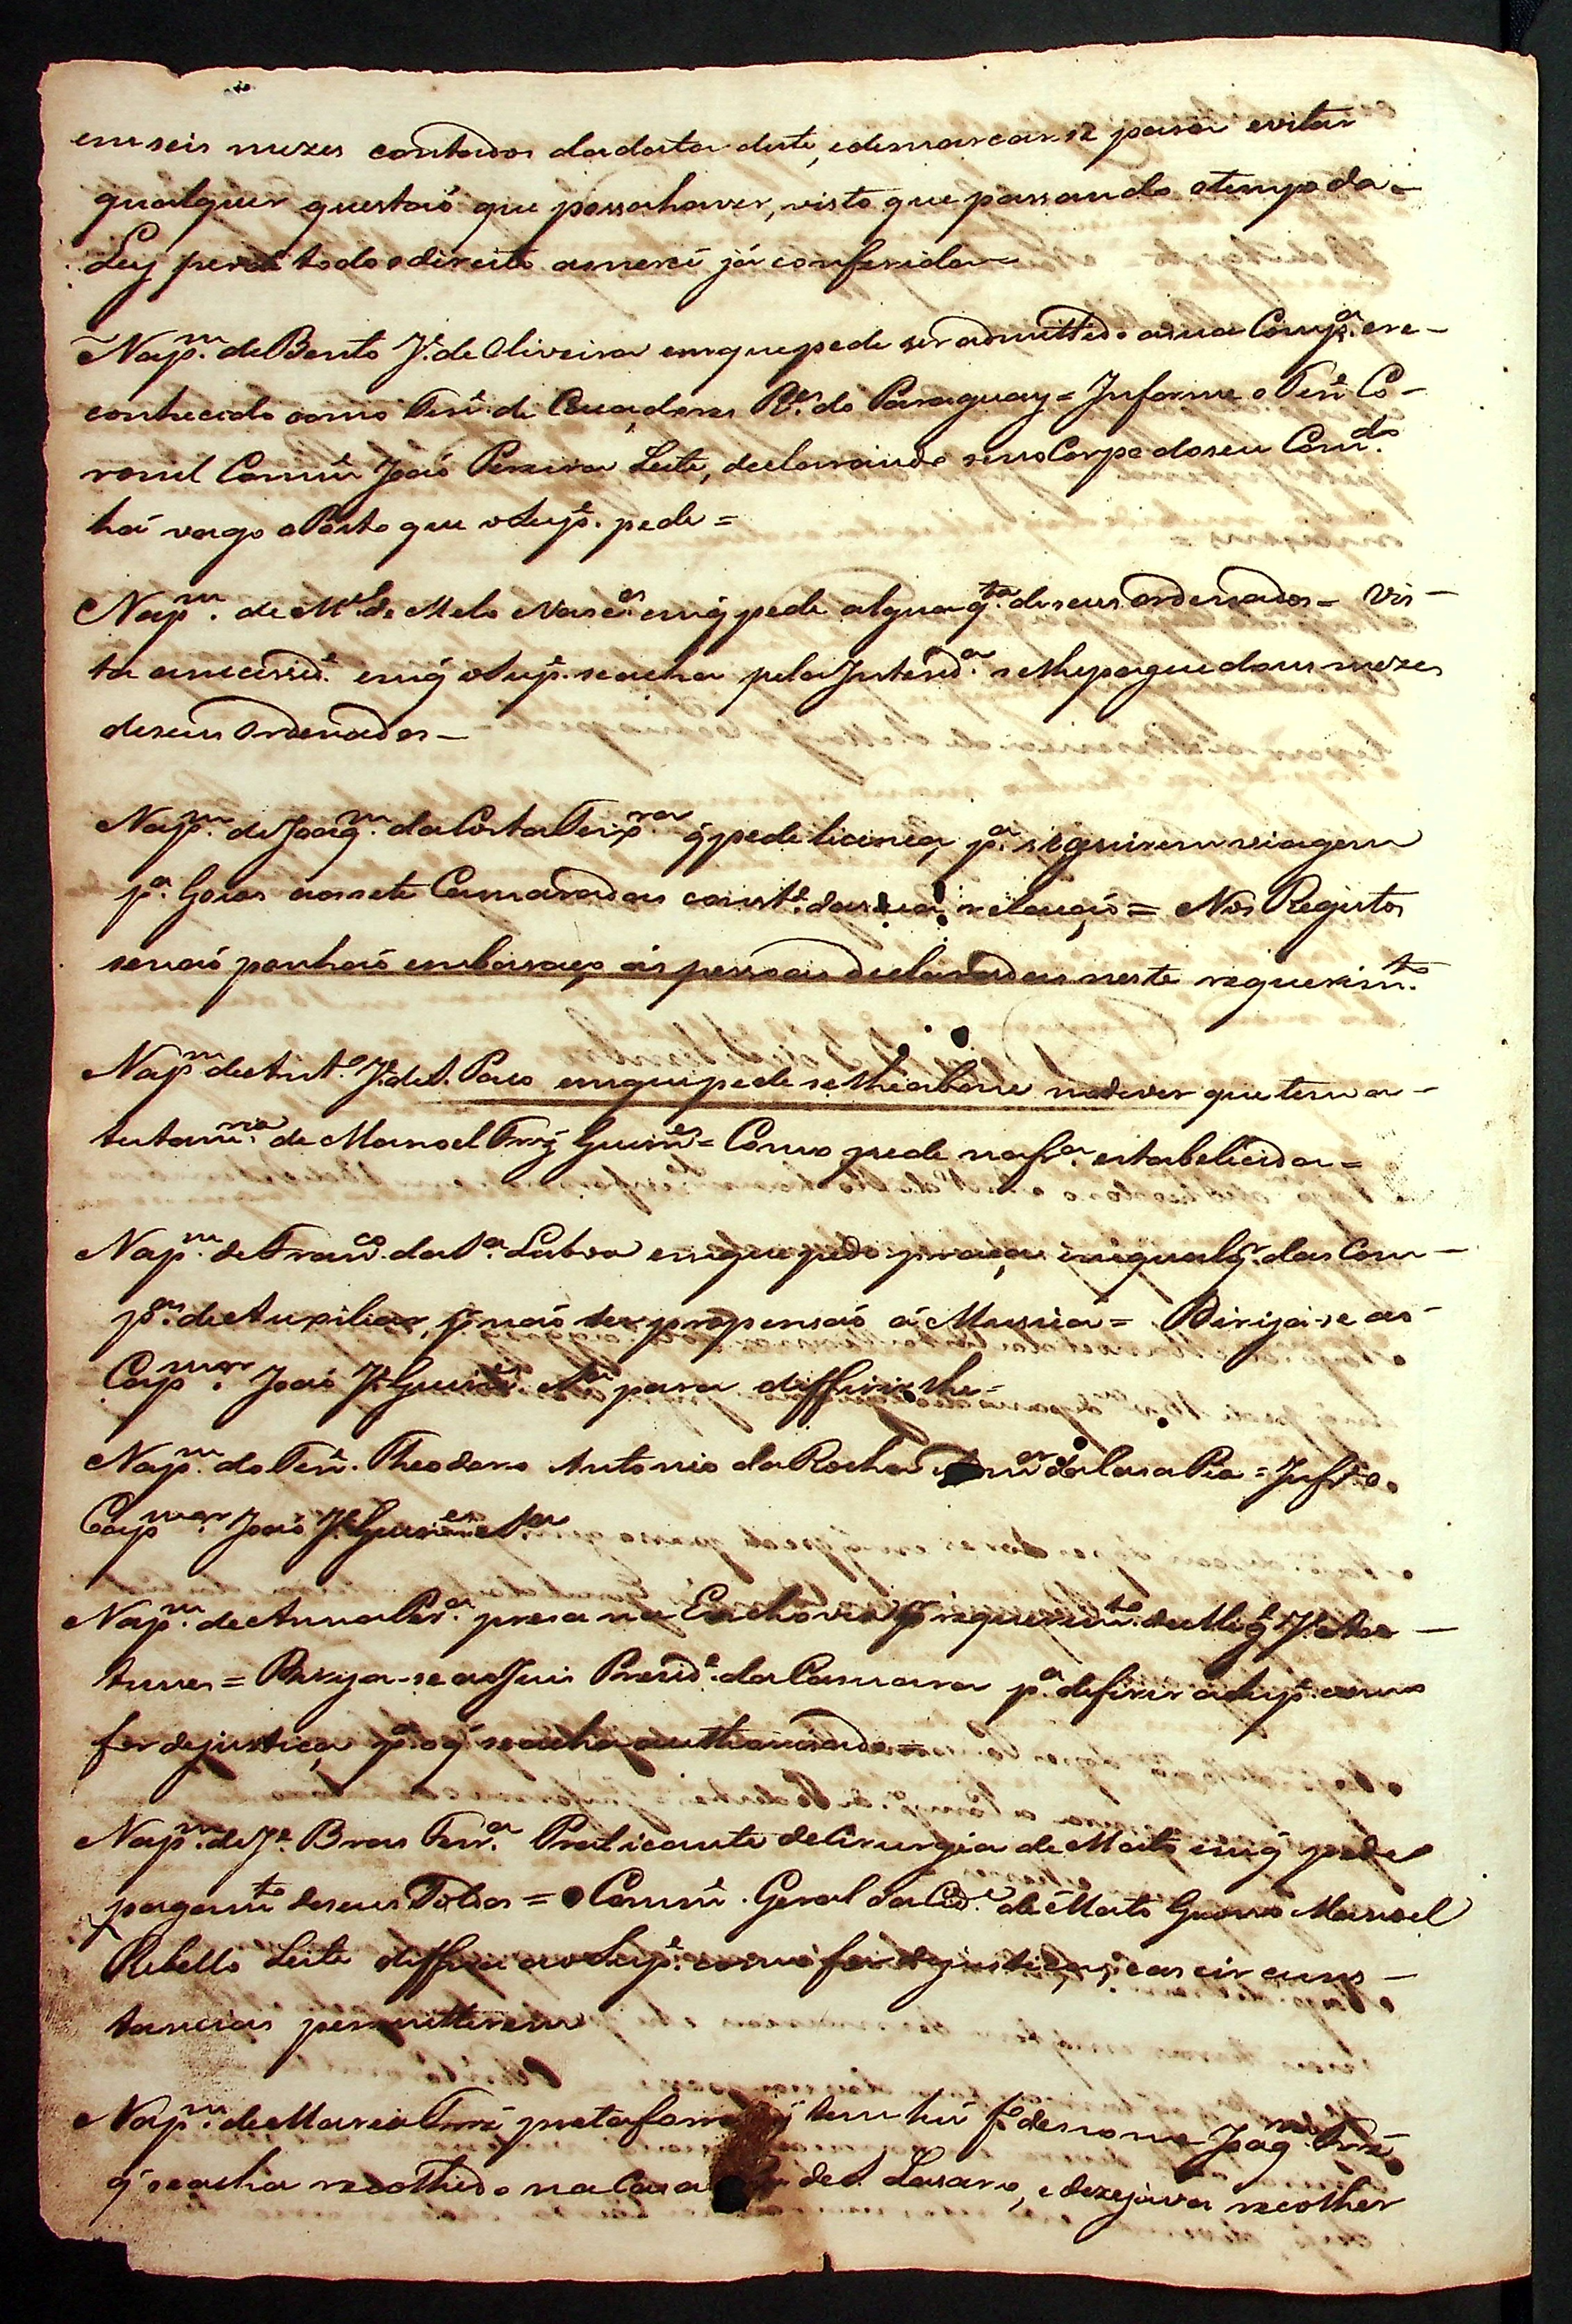 em seis mezes contados da data deste, e demarcarse para evitar
qualquer questaõ que possa haver, visto que passando o tempo da -
Ley perde todo o direito a merce já conferida =
Na p.m de Bento J.e de Oliveira em que pede ser admittido a sua Comp.a e re -
conhecido como Ten.e de Caçadores R.es do Paraguay = Informe o Ten.e Co -
ronel Comm.e Joaõ Pereira Leite, declarando se no Corpo do seu Com.do
há vago o Posto que o Sup.e pede =
Na p.m de M.el de Melo Vasc.os em q̃ pede algũa q.ta de seus ordenados = Vis -
ta a necessid.e em q̃ o Sup.e se acha pela Intend.a se lhe pague dous mezes
de seus Ordenados -
Na p.m de Joaq.m da Costa Teix.ra q̃ pede licença p.a seguirem viagem
p.a Goias aos sete Camaradas const.es da sua relaçaõ = Nos Registos
se naõ ponhaõ embaraço ás pessoas declaradas neste requerim.to
Na p.m de Ant.o J.e de S. Paio em que pede se lhe abone no dever que tem a -
tutam.ria de Manoel Frz̃ Guim.es = Como pede na fr.a estabelecida =
Na p.m de Fran.co da S.a Lutra em que pede praça em qualq.r das Com -
p.as de Auxiliar, q̃ naõ tem propensaõ á Musica = Dirija-se ao -
Cap.m mor Joaõ J.e Guim.es e S.a para differir-lhe =
Na p.m do Ten.e Theodoro Antonio da Rocha da Casa Pia = Inf.e o
Cap.m mor Joaõ J.e Guim.es e S.a
Na p.m de Anna Per.a presa na Enchovia p.r requerim.to de Mig.l J.e An -
tunes = Dirija-se ao Juis Presid.e da Camara p.a deferir a Sup.e como
for de justiça p.a o q̃ se acha authorisado =
Na p.m de J.e Bras Ferr.a Praticante de Cirurgia de Mato em q̃ pede
pagam.to de seus Soldos = o Comm.e Geral da Cid.e de Mato Grosso Manoel
Rebello Leite differa ao Sup.e como for de justiça, e as circuns -
tancias permittirem
Na p.m de Maria Frr̃ã preta forra q̃ tem hũ f.o de nome Joaq.m Frr̃ã
q̃ se acha recolhido na Casa de S. Lasaro, e dezejava recolher